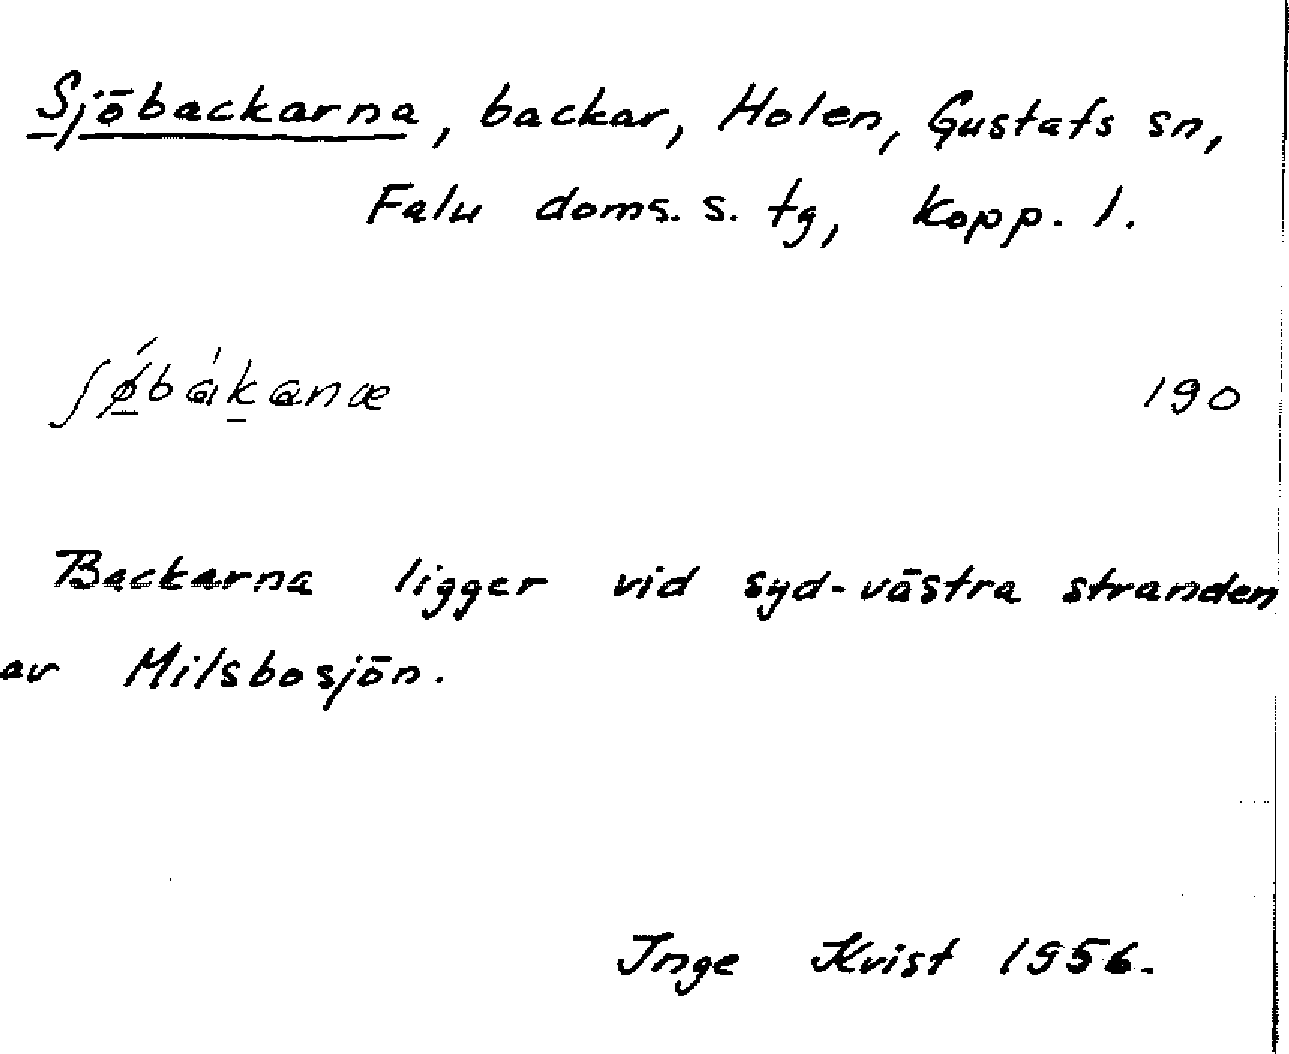 Sjöbackarna, backar, Holen, Gustafs sn,
Falu doms. s. tg, Kopp. l.
ʃǿ̱bákanæ 190
Backarna ligger vid syd-västra stranden
av Milsbosjön.
Inge Kvist 1956.